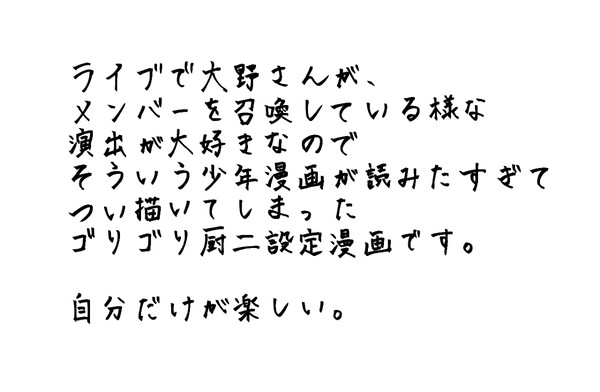 ライブで大野さんが、
メンバーを召喚している様な
演出が大好きなので
そういう少年漫画が読みたすぎて
つい描いてしまった
ゴリゴリ厨二設定漫画です。
自分だけが楽しい。